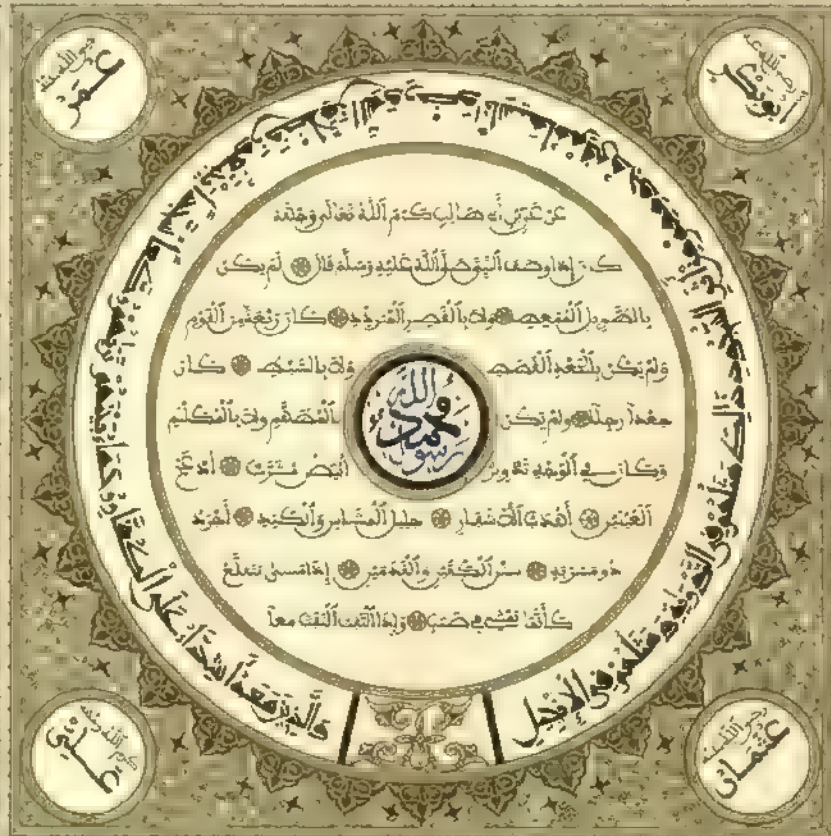 أبو بكر رضي الله عنه
عمر رضي الله عنه
والذين معه أشداء على الكفار رحماء بينهم
السجود ذلك مثلهم في التوراة ومثلهم في الإنجيل
عن علي بن أبي طالب كرم الله تعالى وجهه
كان إذا وصف النبي صلى الله عليه وسلم قال لم يكن
بالطويل الممغط ولا بالقصير المتردد كان ربعة من القوم
ولم يكن بالجعد القطط ولا بالسبط كان
جعداً رجلاً ولم يكن بالمطهم ولا بالمكلثم
وكان في الوجه تدوير أبيض مشرب أدعج
العينين أهدب الأشفار جليل المشاش والكتد أجرد
ذو مسربة شثن الكفين والقدمين إذا مشى تقلع
كأنما يمشي في صبب وإذا التفت التفت معاً
محمد رسول الله
عثمان رضي الله عنه
علي كرم الله وجهه